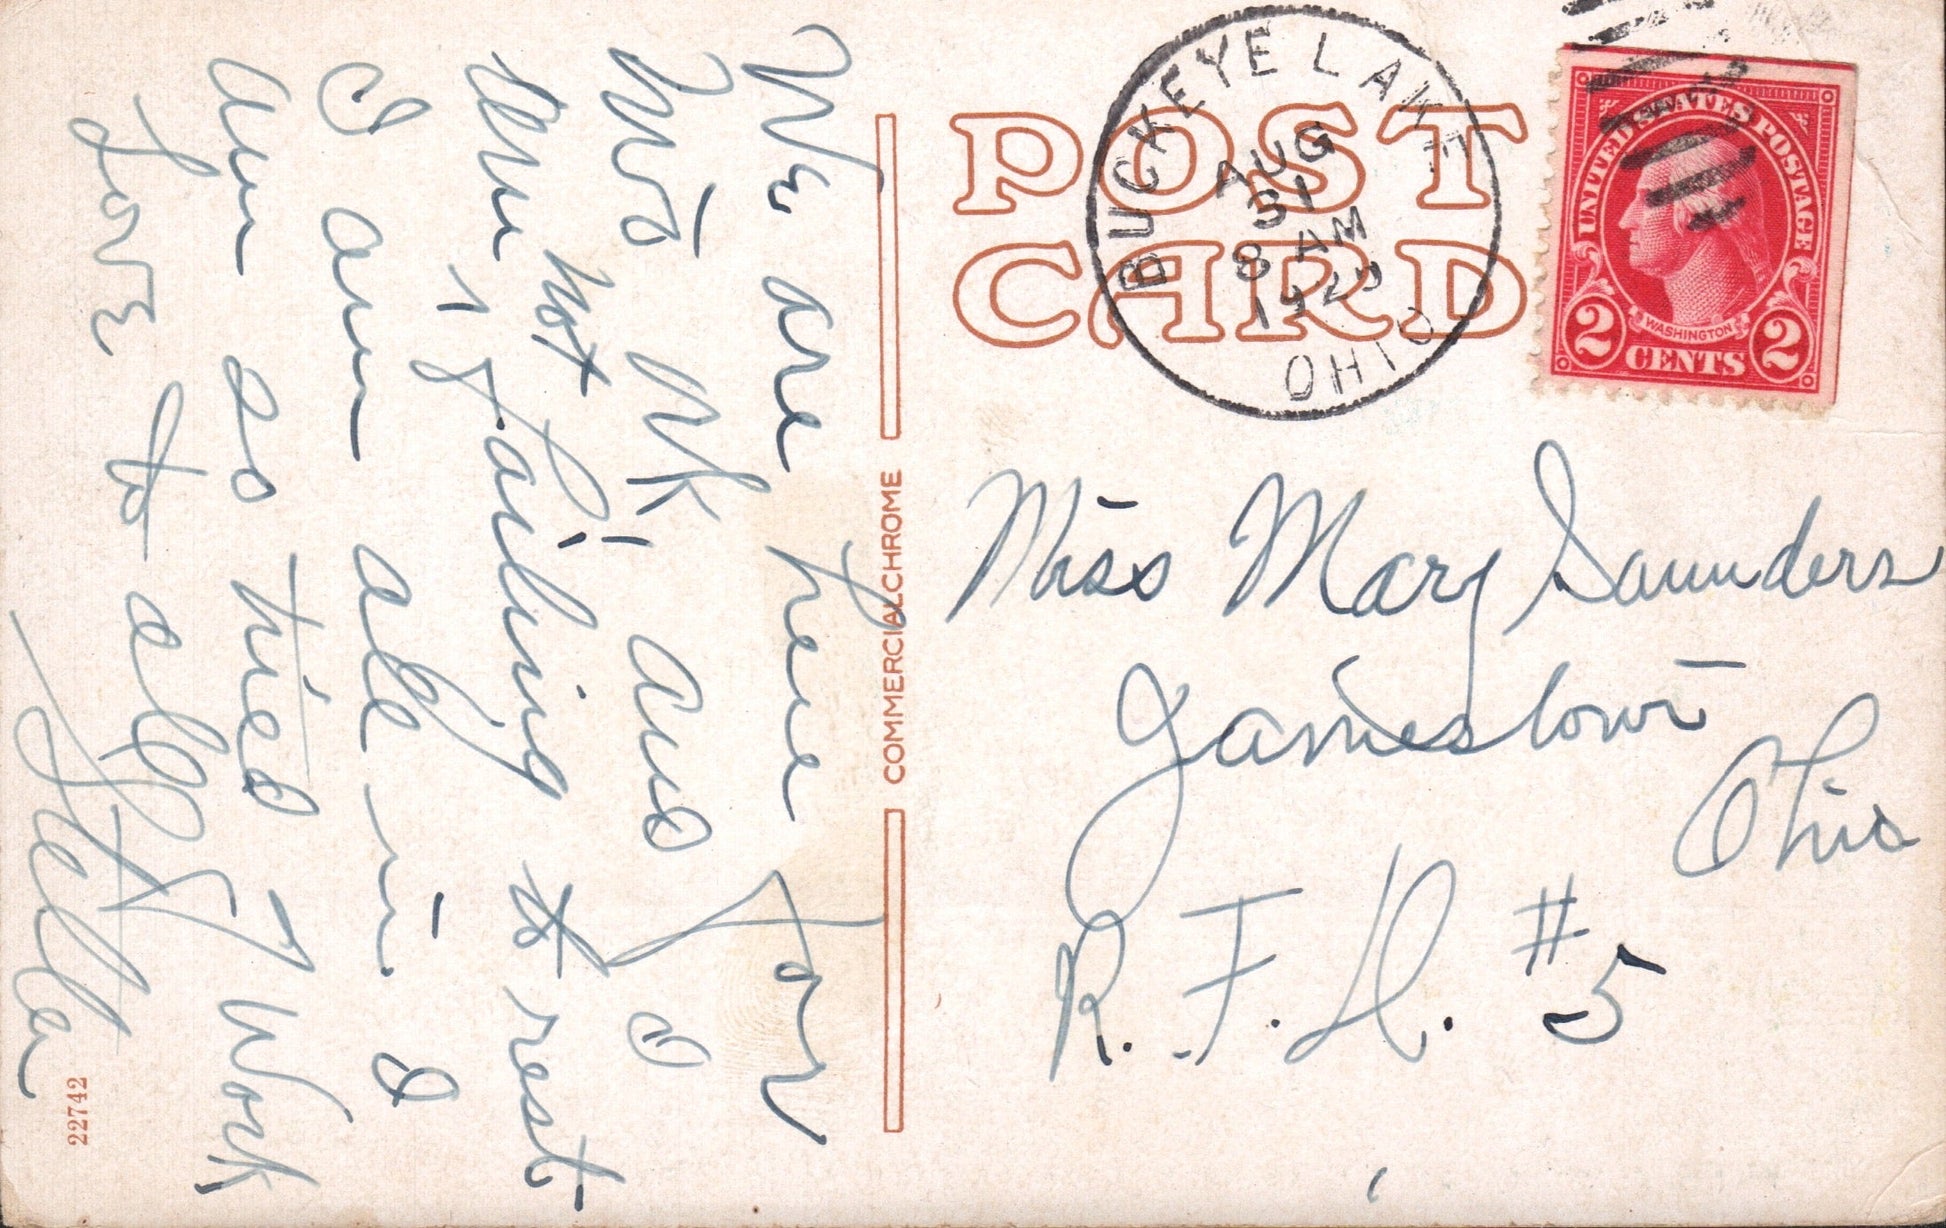 We are here for
two wk and I
am not failing to rest
I am all in. I
am so tied I work
Love to all
Stella
22742
COMMERCIALCHROME
POST
CARD
BUCKEYE LAKE
AUG
31
8 AM
OHIO
UNITED STATES POSTAGE
WASHINGTON
2 CENTS 2
Miss Mary Saunders
Jamestown
Ohio
R.F.D. #5